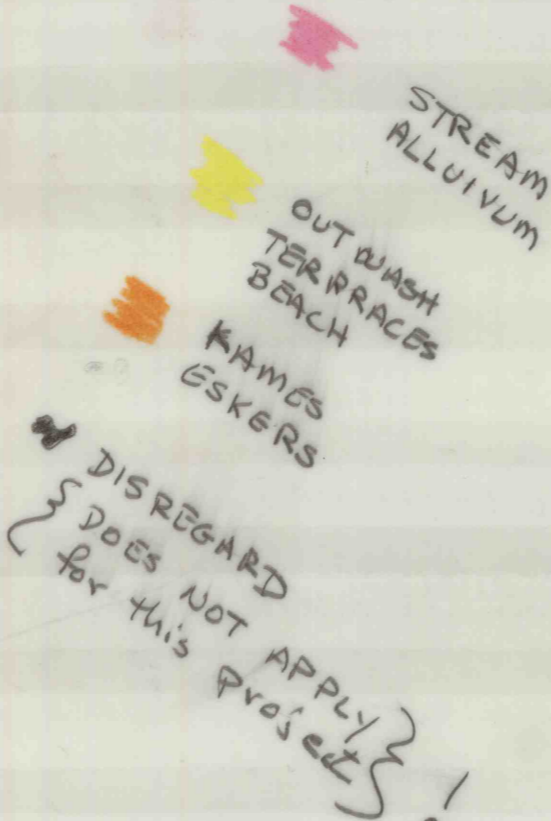 STREAM
ALLUIVUM
OUTWASH
TERRRACES
BEACH
KAMES
ESKERS
DISREGARD
{ DOES NOT APPLY }
for this project !